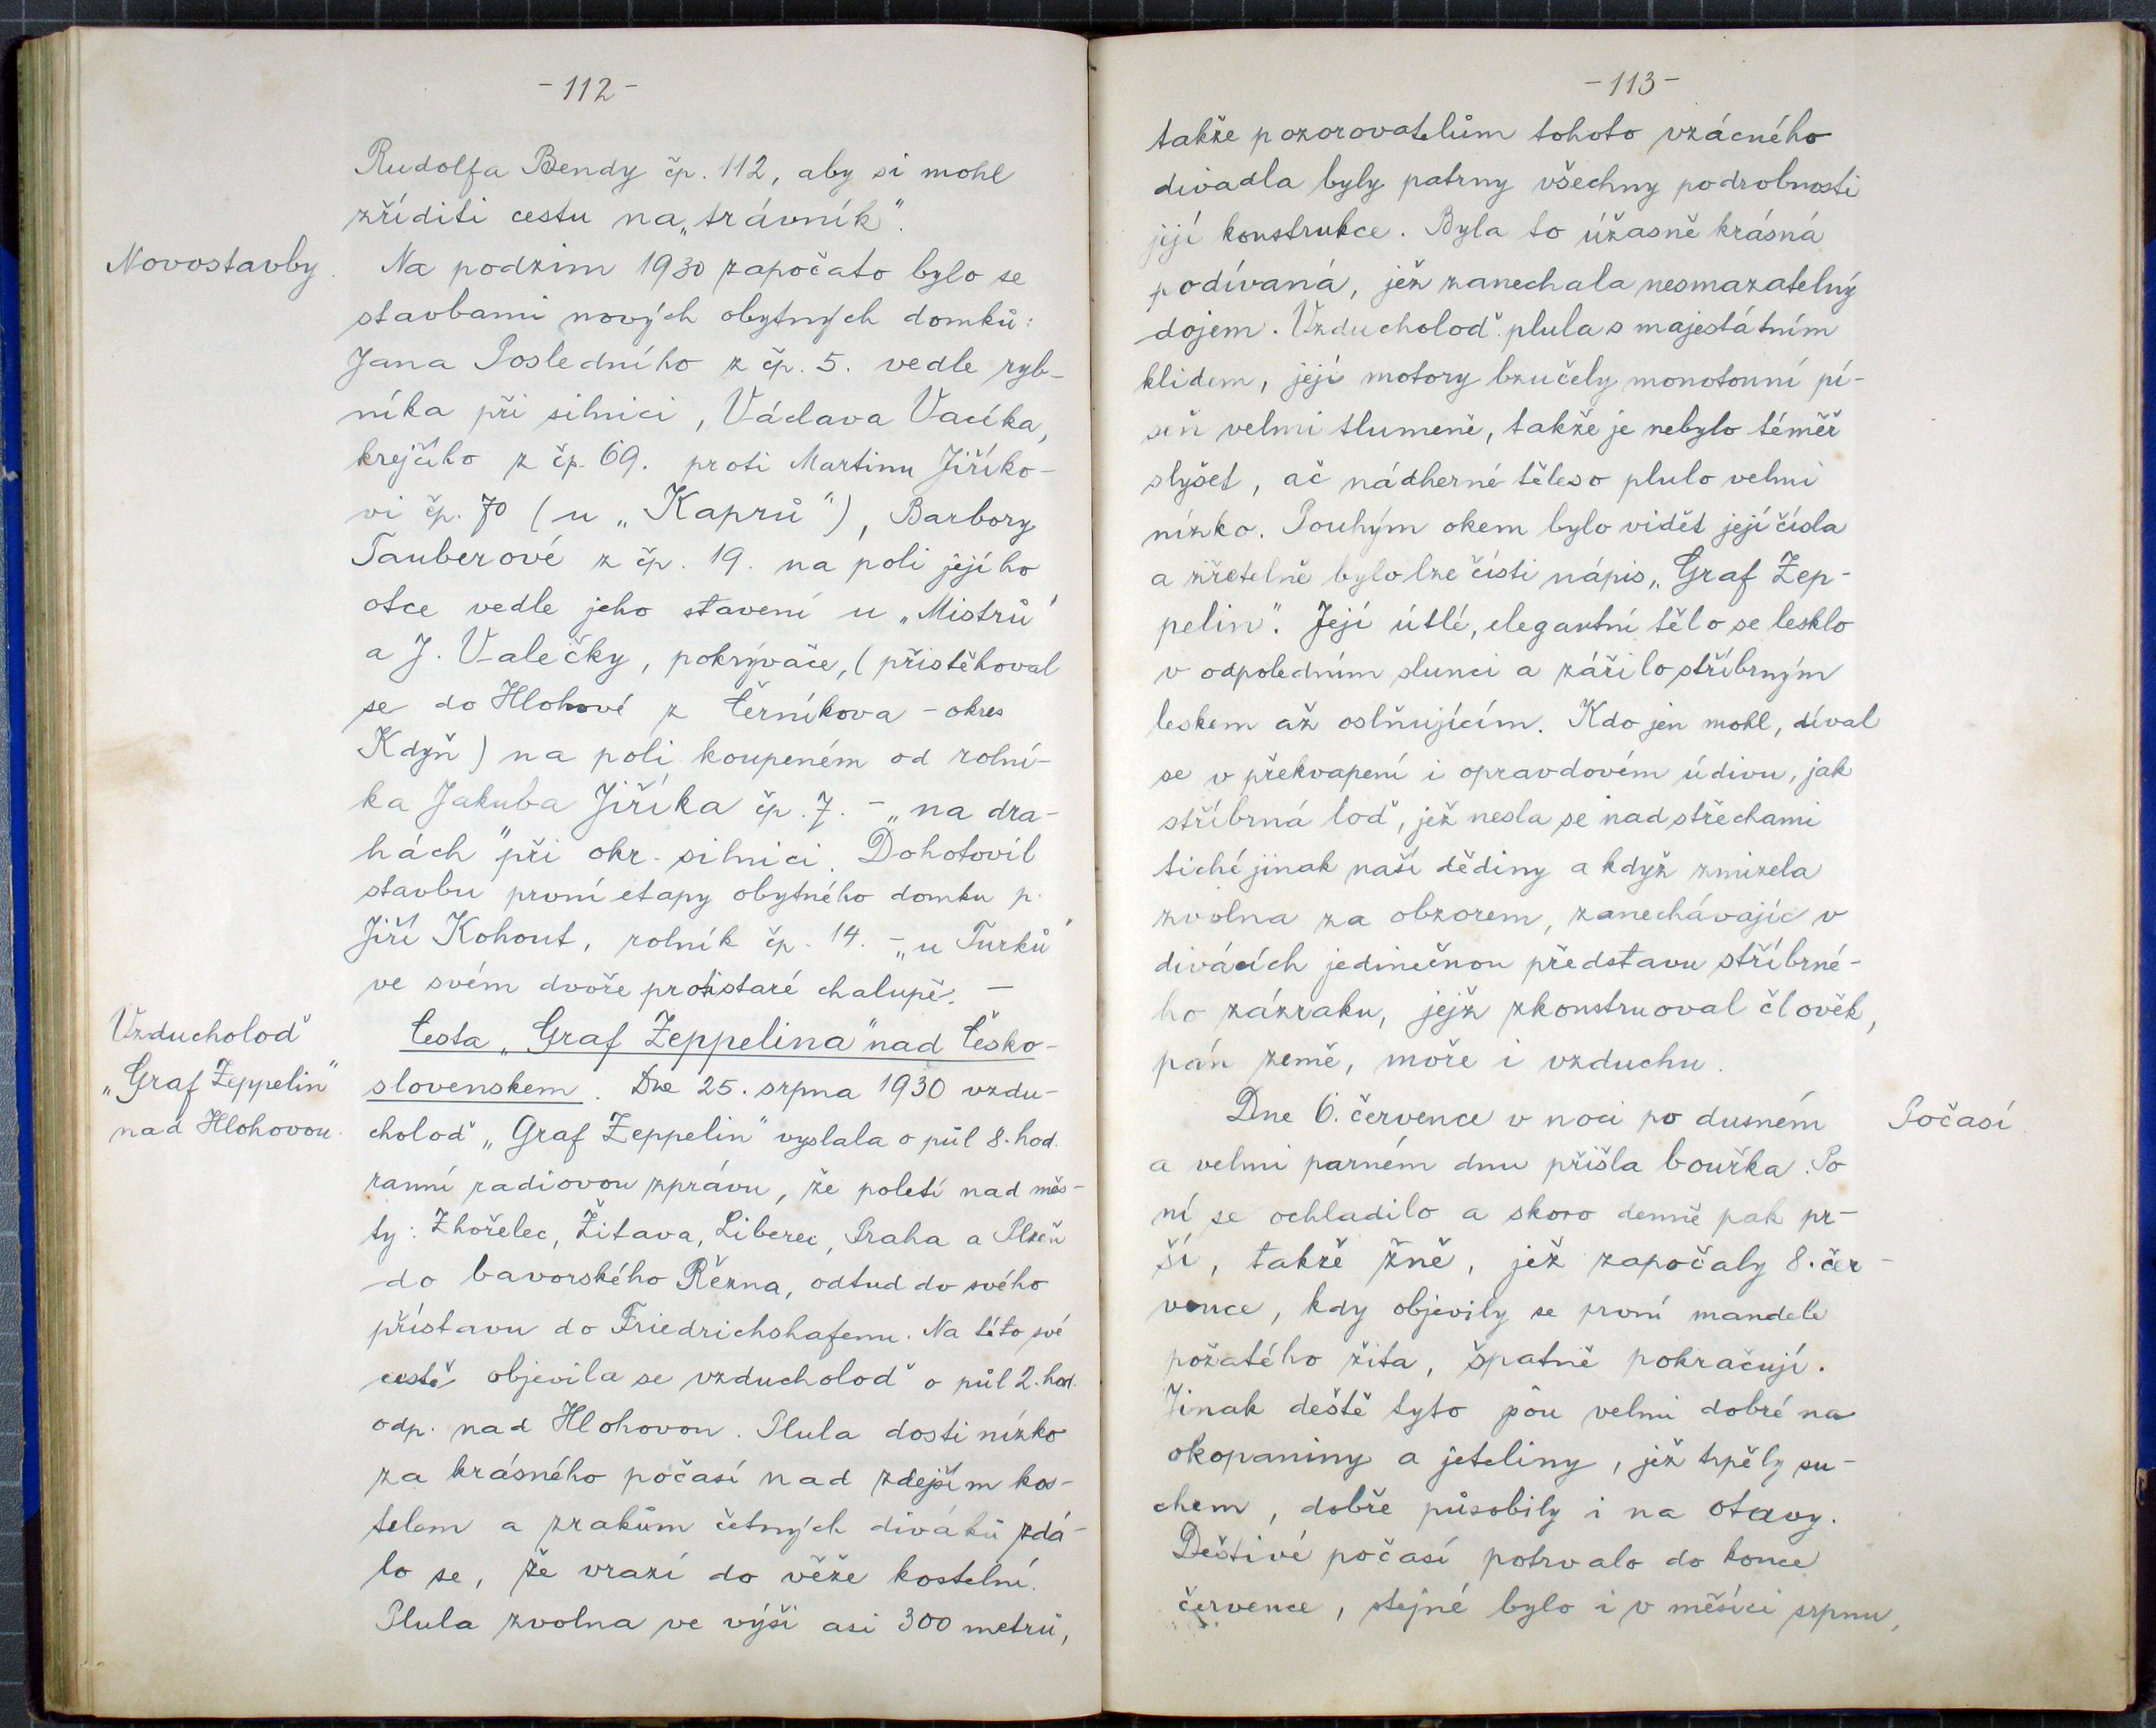 -112-
Rudolfa Bendy čp. 112, aby si mohl
zříditi cestu na „trávník".
Novostavby.
Na podzim 1930 započato bylo se
stavbami nových obytných domků:
Jana Posledního z čp. 5. vedle ryb-
níka při silnici, Václava Vacíka,
krejčího z čp. 69. proti Martinu Jiříko-
vi čp. 70 (u „Kaprů"), Barbory
Tauberové z čp. 19. na poli jejího
otce vedle jeho stavení u „Mistrů"
a J. Valečky, pokrývače, (přistěhoval
se do Hlohové z Černíkova - okres
Kdyň) na poli koupeném od rolní-
ka Jakuba Jiříka čp. 7. - „na dra-
hách" při okr. silnici. Dohotovil
stavbu první etapy obytného domku p.
Jiří Kohout, rolník čp. 14. - „u Turků"
ve svém dvoře proti staré chalupě. -
Vzducholoď
„Graf Zeppelin"
nad Hlohovou.
Cesta „Graf Zeppelina" nad Česko-
slovenskem. Dne 25. srpna 1930 vzdu-
choloď „Graf Zeppelin" vyslala o půl 8. hod.
ranní radiovou zprávu, že poletí nad měs-
ty: Zhořelec, Žitava, Liberec, Praha a Plzeň
do bavorského Řezna, odtud do svého
přístavu do Friedrichshafenu. Na této své
cestě objevila se vzducholoď o půl 2. hod.
odp. nad Hlohovou. Plula dosti nízko
za krásného počasí nad zdejším kos-
telem a zrakům četných diváků zdá-
lo se, že vrazí do věže kostelní.
Plula zvolna ve výši asi 300 metrů,
-113-
takže pozorovatelům tohoto vzácného
divadla byly patrny všechny podrobnosti
její konstrukce. Byla to úžasně krásná
podívaná, jež zanechala nesmazatelný
dojem. Vzducholoď plula s majestátním
klidem, její motory bzučely monotonní pí-
seň velmi tlumeně, takže je nebylo téměř
slyšet, ač nádherné těleso plulo velmi
nízko. Pouhým okem bylo vidět její čísla
a zřetelně bylo lze čísti nápis „Graf Zep-
pelin". Její útlé, elegantní tělo se lesklo
v odpoledním slunci a zářilo stříbrným
leskem až oslňujícím. Kdo jen mohl, díval
se v překvapení i opravdovém údivu, jak
stříbrná loď, jež nesla se nad střechami
tiché jinak naší dědiny a když zmizela
zvolna za obzorem, zanechávajíc v
divácích jedinečnou představu stříbrné-
ho zázraku, jejž zkonstruoval člověk,
pán země, moře i vzduchu.
Počasí
Dne 6. července v noci po dusném
a velmi parném dnu přišla bouřka. Po
ní se ochladilo a skoro denně pak pr-
ší, takže žně, jež započaly 8. čer-
vence, kdy objevily se první mandele
požatého žita, špatně pokračují.
Jinak deště tyto jsou velmi dobré na
okopaniny a jeteliny, jež trpěly su-
chem, dobře působily i na otavy.
Deštivé počasí potrvalo do konce
července, stejné bylo i v měsíci srpnu,